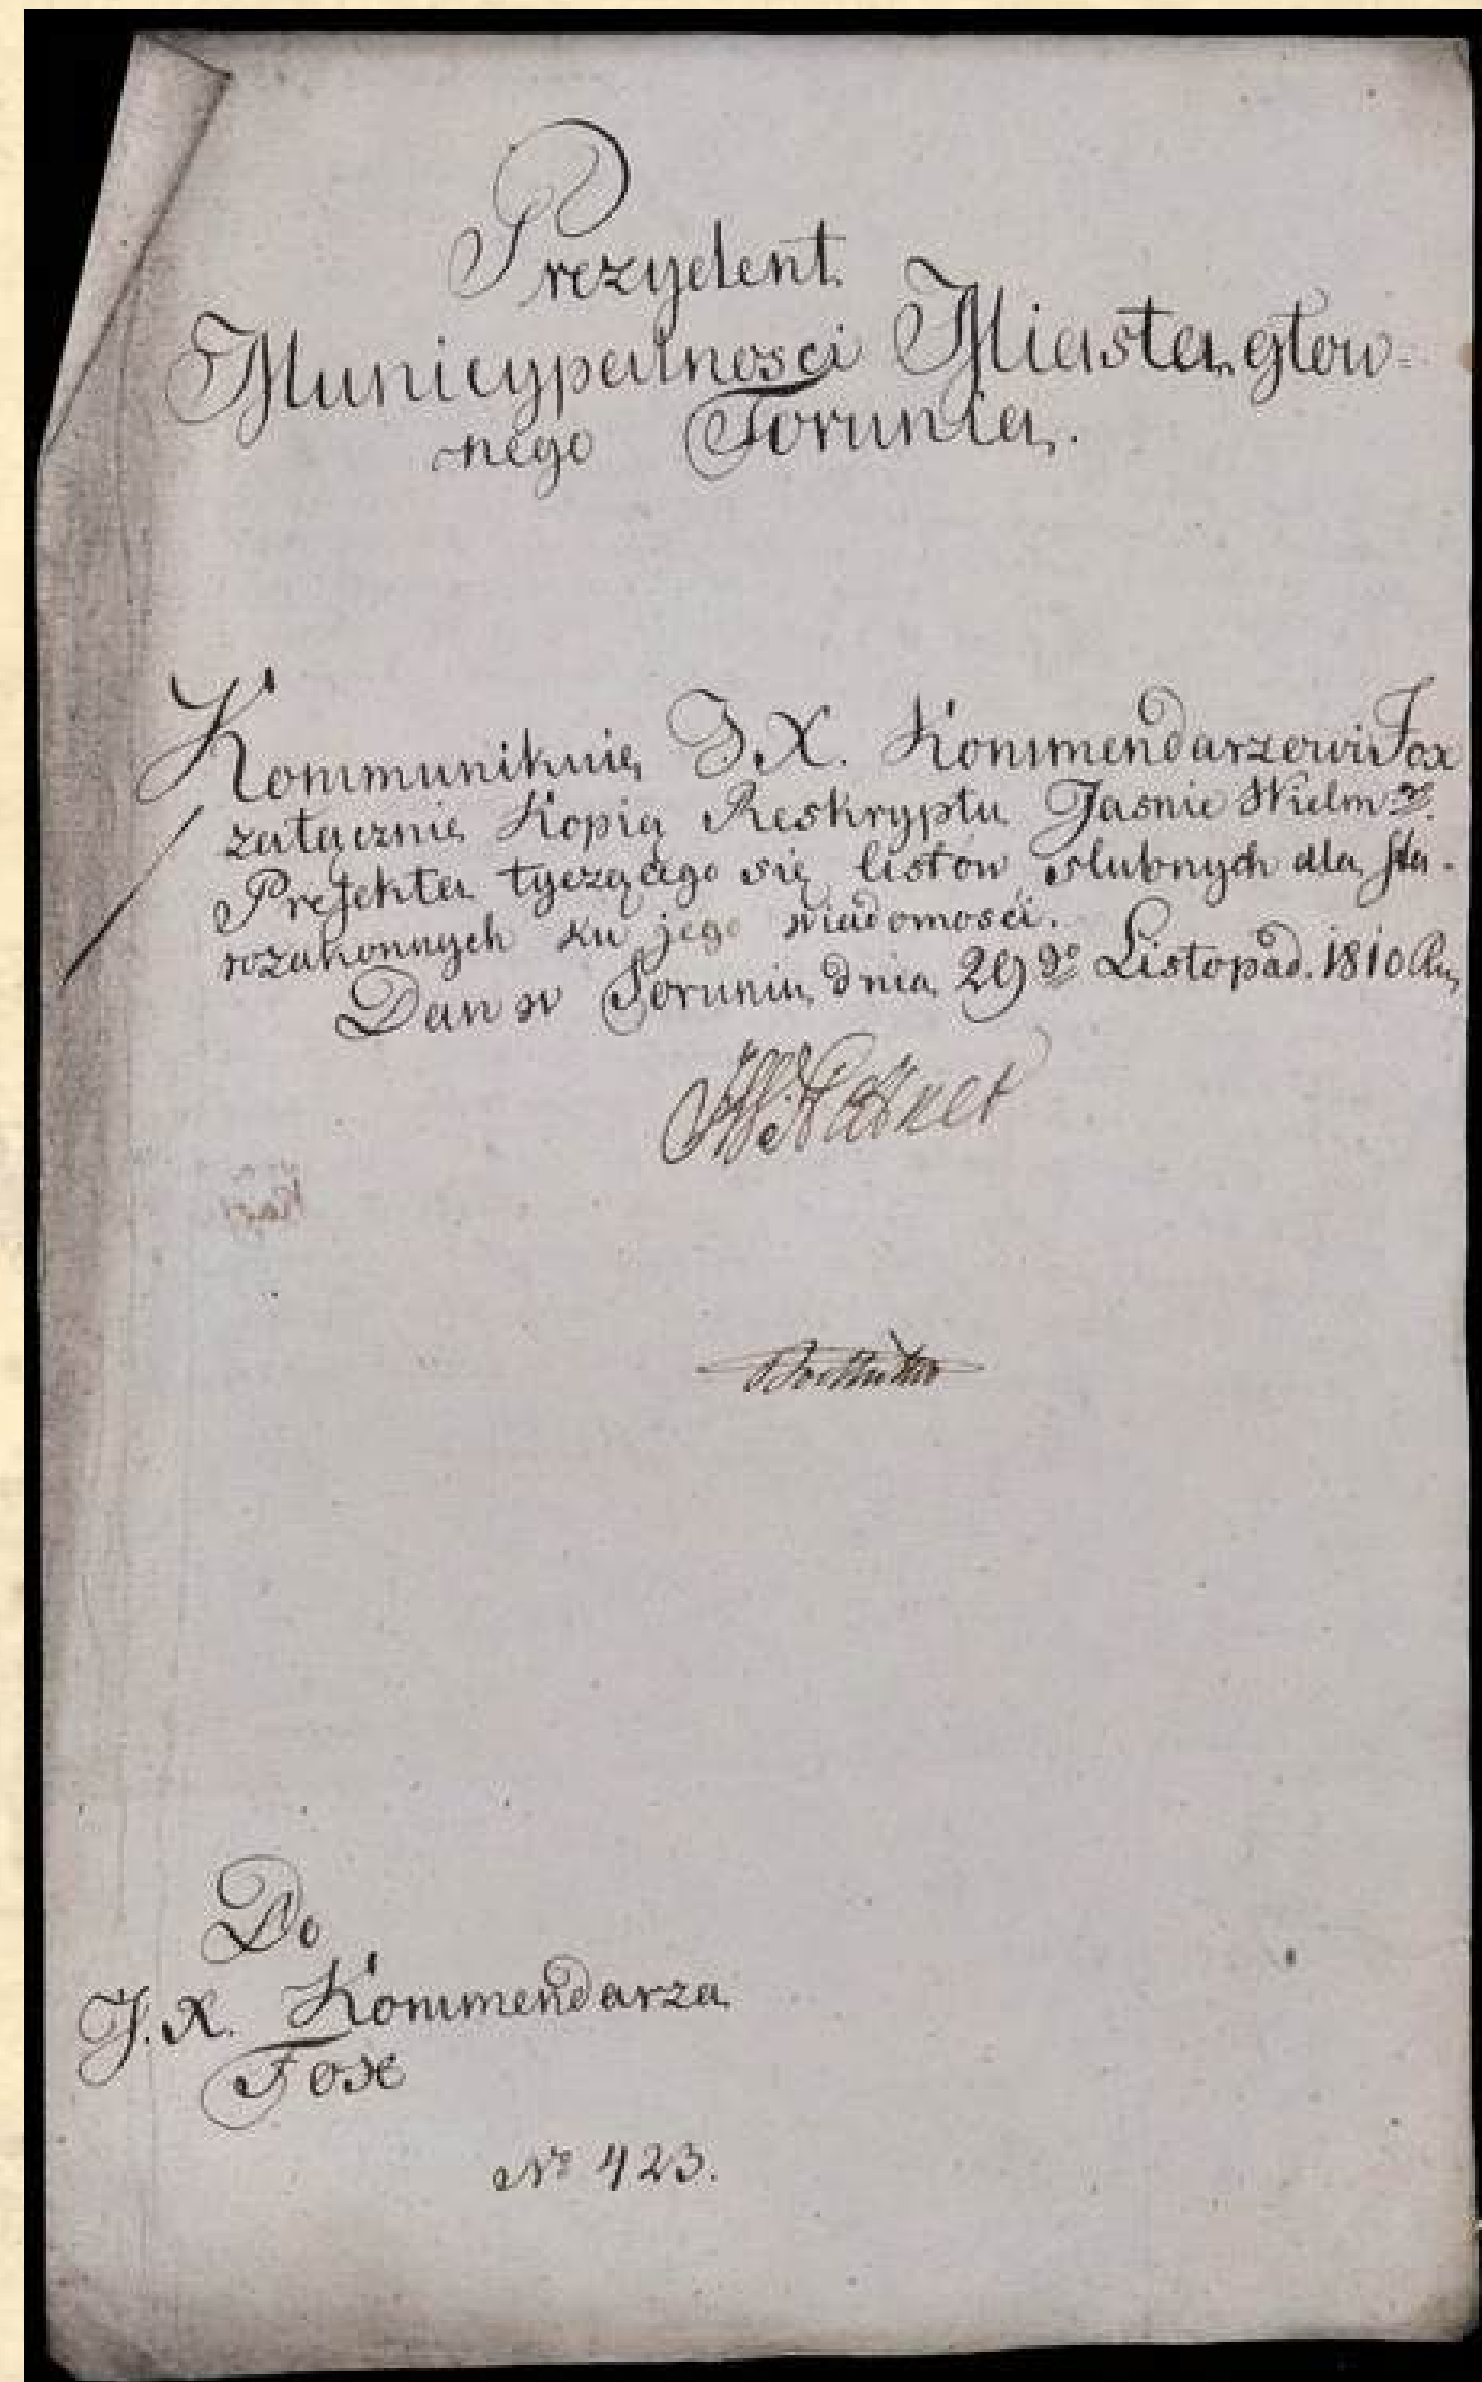 Prezydent
Municypalnosci Miasta głow=
nego Torunia.
Kommunikuię J.X. Kommendarzowi Fox
załącznie Kopią Reskryptu Jasnie Wielm:go
Prefekta tyczącego się listów slubnych dla sta-
rozakonnych ku jego wiadomosci.
Dan w Toruniu dnia 29go Listopad. 1810 Ru
Do
J.X. Kommendarza
Fox
No 423.